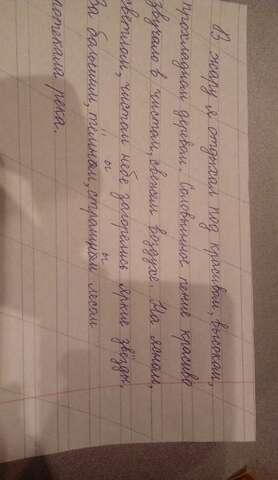 В жару я отдыхал под красивом, высоком,
прохладном деревом. Соловьиное пение красиво
звучало в чистом, свежом воздухе. На ясном,
светлом, чистом небе загорелись яркие звёзды.
За большим, тёмном, страшном лесом
потекала река.